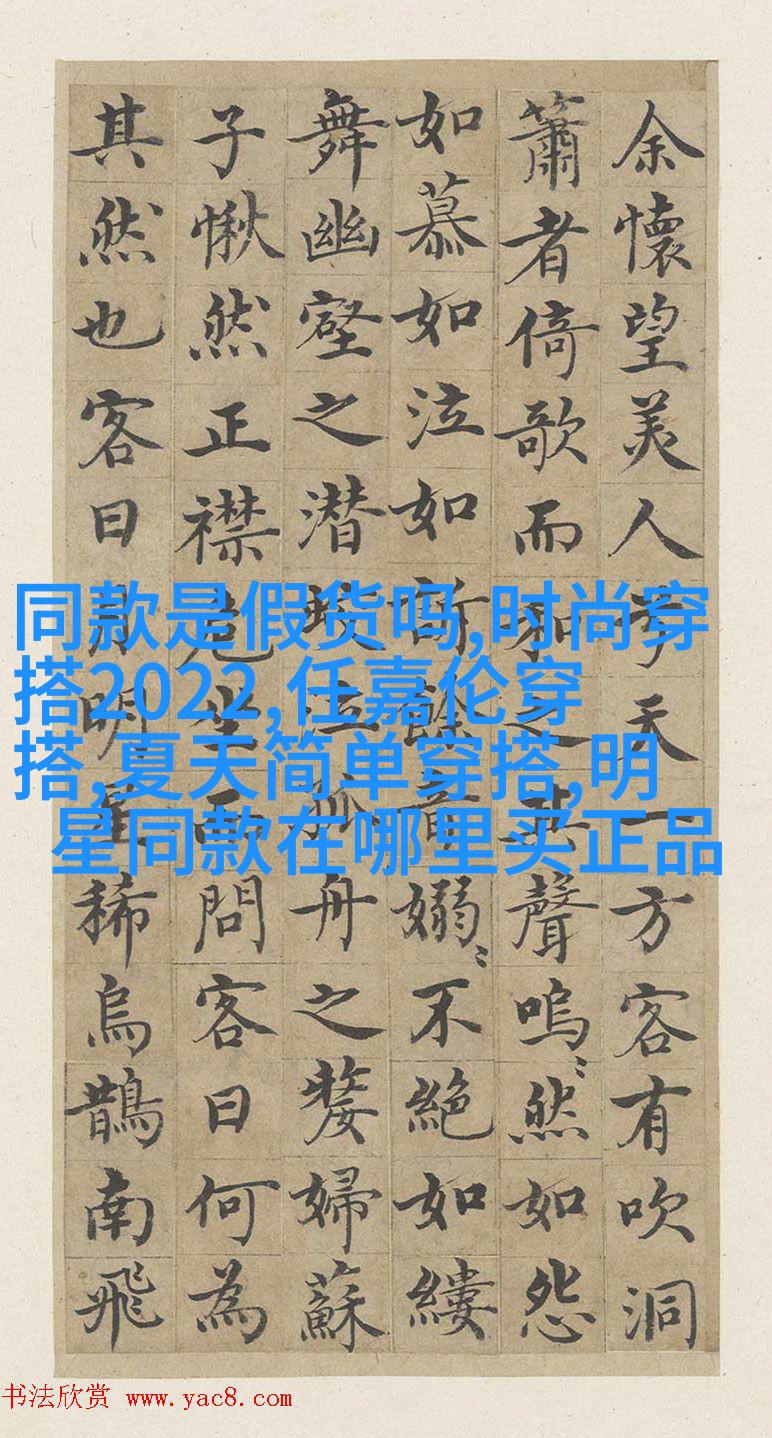 余懷望美人兮天一方客有吹洞
簫者倚歌而和之其聲嗚〻然如怨
如慕如泣如訴餘音嫋〻不絕如縷
舞幽壑之潛蛟泣孤舟之嫠婦蘇
子愀然正襟危坐而問客曰何為
其然也客曰月明星稀烏鵲南飛
同款是假货吗,时尚穿
搭2022,任嘉伦穿
搭,夏天简单穿搭,明
星同款在哪里买正品
书法欣赏 www.yac8.com